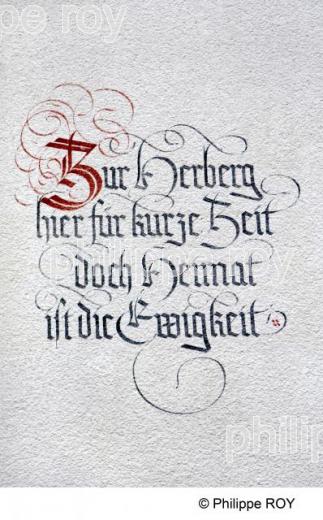 Zur Herberg
hier für kurze Zeit
doch Heimat
ist die Ewigkeit
© Philippe ROY